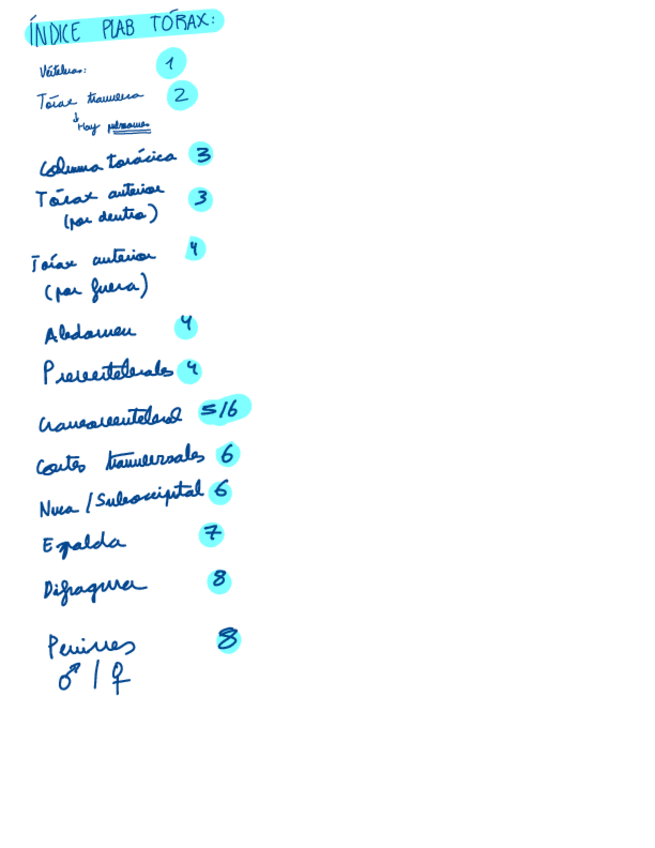 ÍNDICE PLAB TÓRAX:
Vértebras: 1
Tórax transversa 2
↓ Hay pulmones
Columna torácica 3
Tórax anterior 3
(por dentro)
Torax anterior 4
(por fuera)
Abdomen 4
Prevertebrales 4
Craneovertebral 5/6
Cortes transversales 6
Nuca / Suboccipital 6
Espalda 7
Difragma 8
8
♂ / ♀